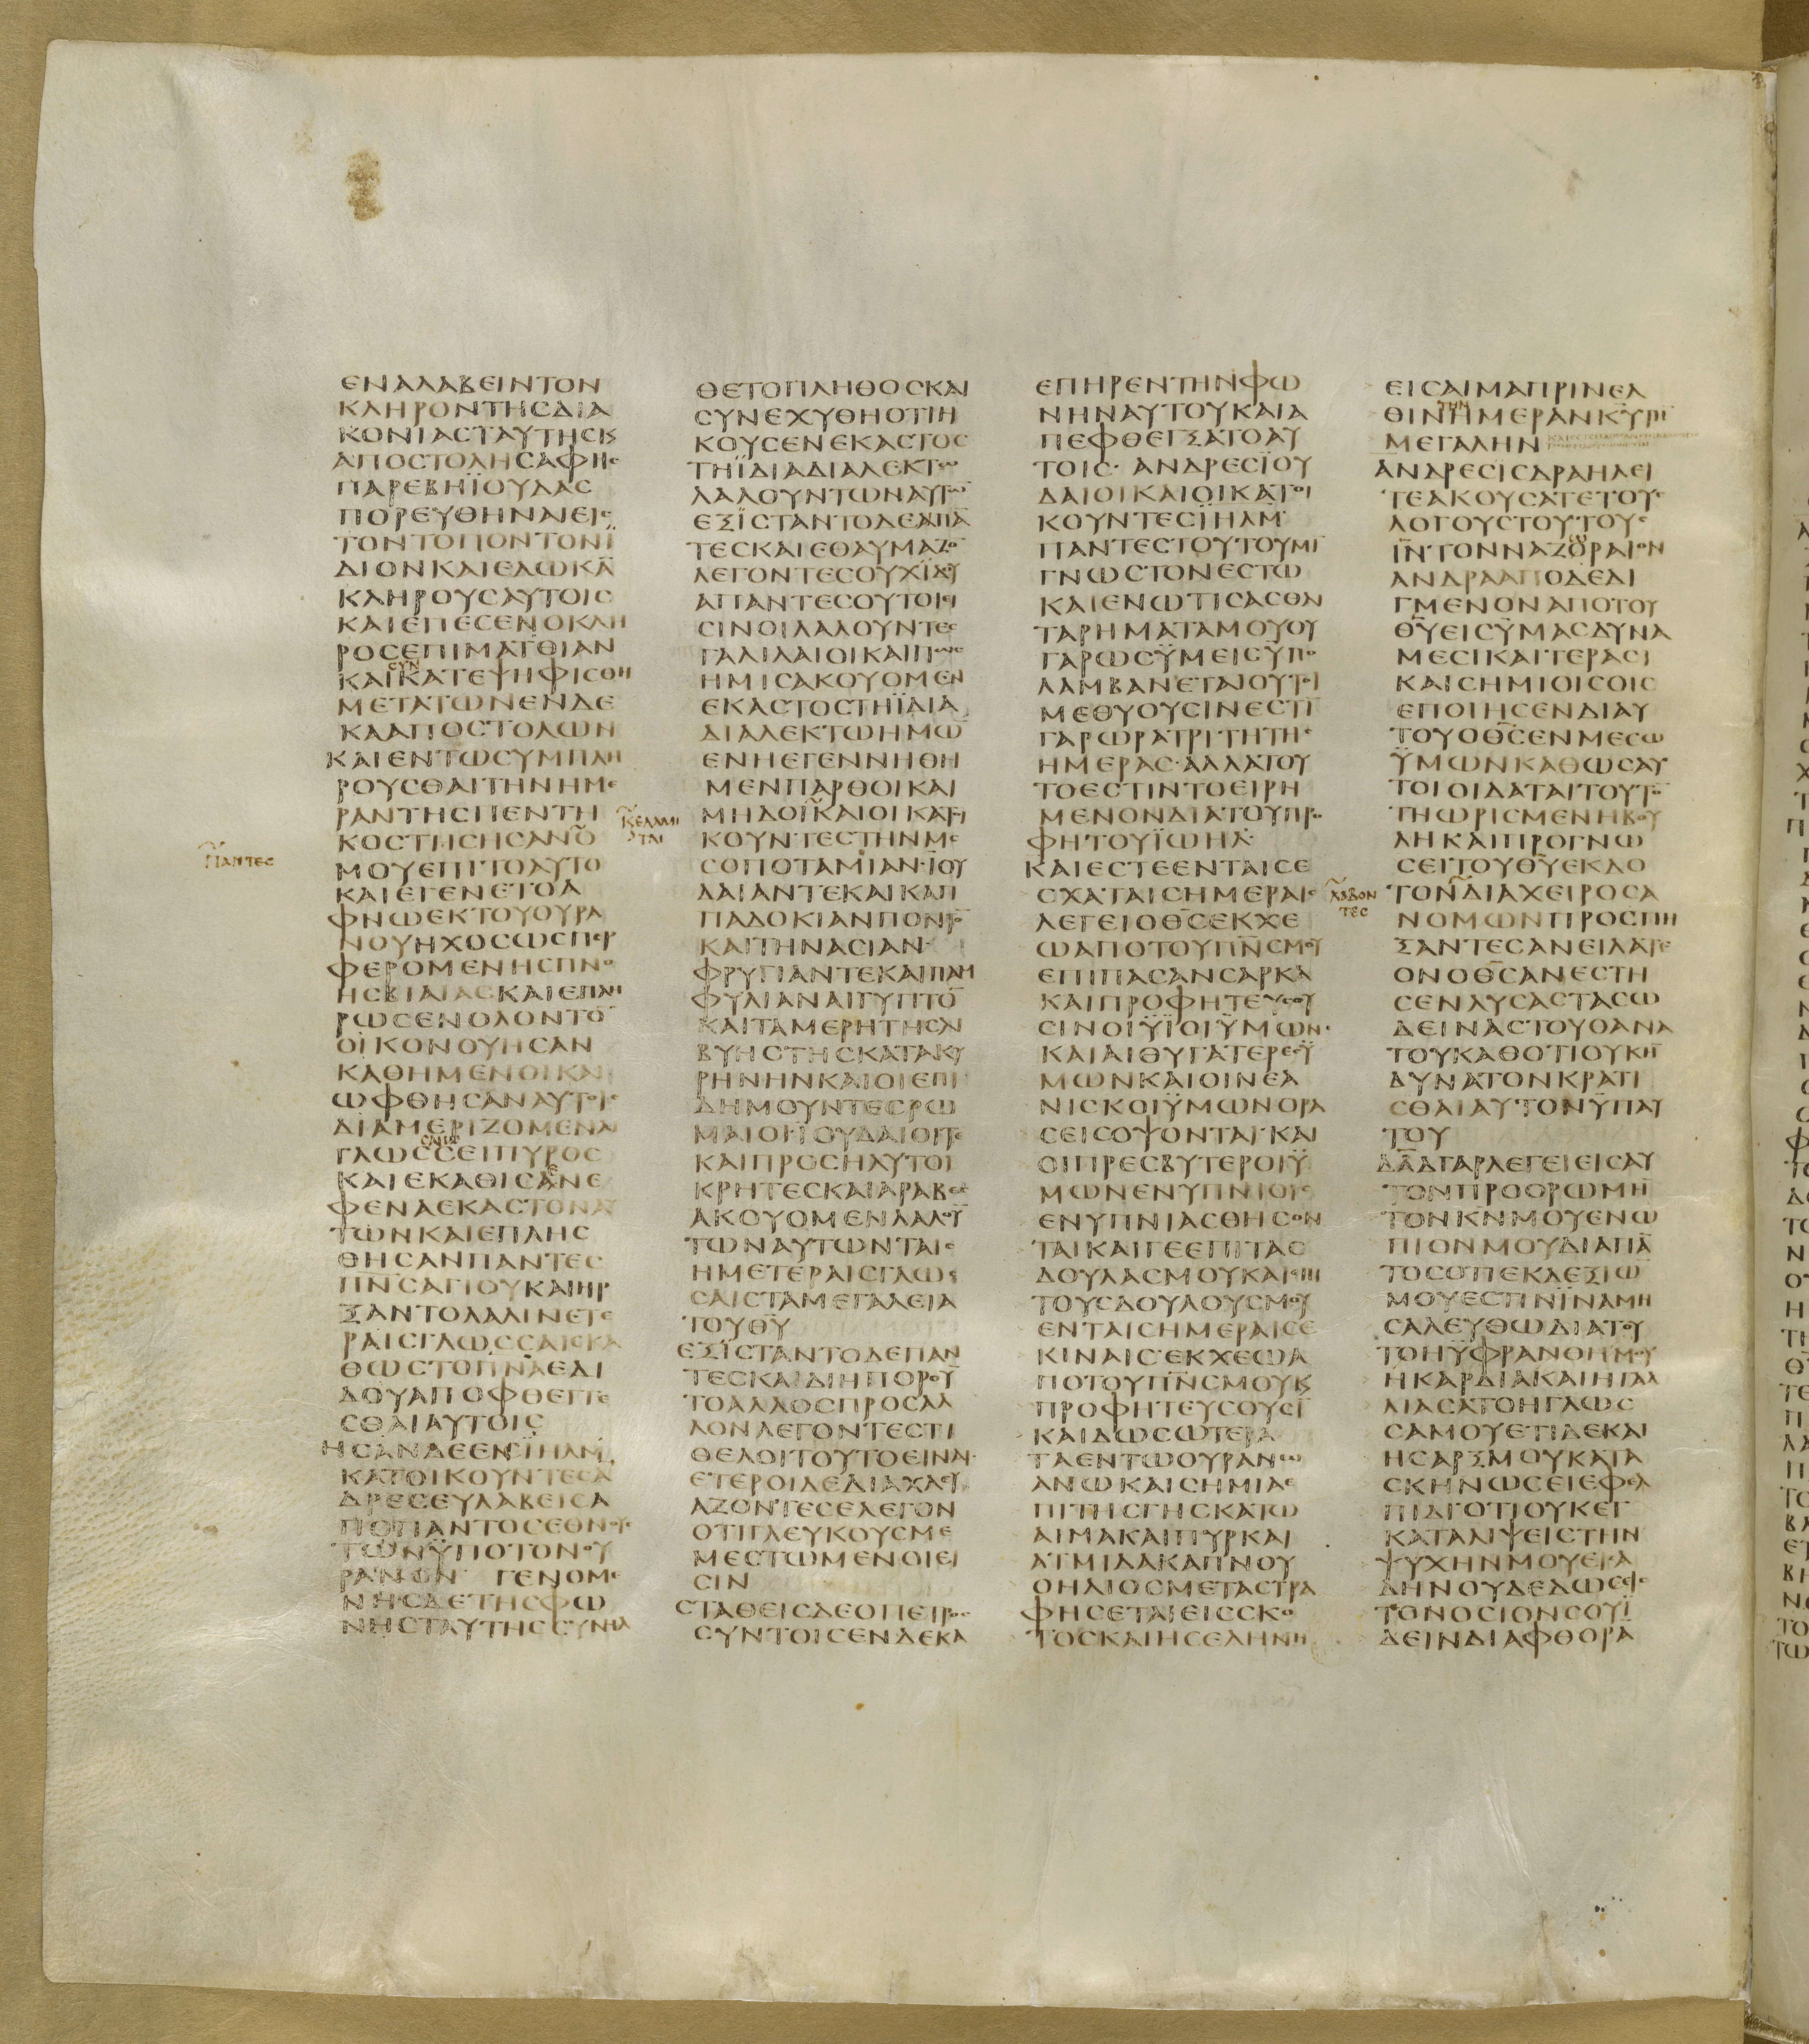 ΕΝΑΛΑΒΕΙΝΤΟΝ
ΚΛΗΡΟΝΤΗϹΔΙΑ
ΚΟΝΙΑϹΤΑΥΤΗϹΚϗ
ΑΠΟϹΤΟΛΗϹΑΦΗϹ
ΠΑΡΕΒΗΪΟΥΔΑϹ
ΠΟΡΕΥΘΗΝΑΙΕΙϹ
ΤΟΝΤΟΠΟΝΤΟΝΪ
ΔΙΟΝΚΑΙΕΔΩΚΑ̅
ΚΛΗΡΟΥϹΑΥΤΟΙϹ
ΚΑΙΕΠΕϹΕΝΟΚΛΗ
ΡΟϹΕΠΙΜΑΤΘΙΑΝ
ϹΥΝ
ΚΑΙΚΑΤΕΨΗΦΙϹΘΗ
ΜΕΤΑΤΩΝΕΝΔΕ
ΚΑΑΠΟϹΤΟΛΩΝ
ΚΑΙΕΝΤΩϹΥΜΠΛΗ
ΡΟΥϹΘΑΙΤΗΝΗΜΕ
ΡΑΝΤΗϹΠΕΝΤΗ
ΚΟϹΤΗϹΗϹΑΝΟ
ΠΑΝΤΕϹ
ΜΟΥΕΠΙΤΟΑΥΤΟ
ΚΑΙΕΓΕΝΕΤΟΑ
ΦΝΩΕΚΤΟΥΟΥΡΑ
ΝΟΥΗΧΟϹΩϹΠΕΡ
ΦΕΡΟΜΕΝΗϹΠΝΟ
ΗϹΒΙΑΙΑϹΚΑΙΕΠΛΗ
ΡΩϹΕΝΟΛΟΝΤΟ̅
ΟΙΚΟΝΟΥΗϹΑΝ
ΚΑΘΗΜΕΝΟΙΚΑΙ
ΩΦΘΗϹΑΝΑΥΤΟΙϹ
ΔΙΑΜΕΡΙΖΟΜΕΝΑΙ
ϹΑΙΩϹ
ΓΛΩϹϹΕΙΠΥΡΟϹ
ΚΑΙΕΚΑΘΙϹΑΝΕ
ΦΕΝΑΕΚΑϹΤΟΝΑΥ
ΤΩΝΚΑΙΕΠΛΗϹ
ΘΗϹΑΝΠΑΝΤΕϹ
ΠΝ̅Ϲ̅ΑΓΙΟΥΚΑΙΗΡ
ΞΑΝΤΟΛΑΛΙΝΕΤΕ
ΡΑΙϹΓΛΩϹϹΑΙϹΚΑ
ΘΩϹΤΟΠ̅Ν̅Α̅ΕΔΙ
ΔΟΥΑΠΟΦΘΕΓΓΕ
ϹΘΑΙΑΥΤΟΙϹ
ΗϹΑΝΔΕΕΝΪΗΛΜ
ΚΑΤΟΙΚΟΥΝΤΕϹΑ
ΔΡΕϹΕΥΛΑΒΕΙϹΑ
ΠΟΠΑΝΤΟϹΕΘΝΟΥϹ
ΤΩΝΫΠΟΤΟΝΟΥ
ΡΑΝΟΝ ΓΕΝΟΜΕ
ΝΗϹΔΕΤΗϹΦΩ
ΝΗϹΤΑΥΤΗϹϹΥΝΗΛ
ΘΕΤΟΠΛΗΘΟϹΚΑΙ
ϹΥΝΕΧΥΘΗΟΤΙΗ
ΚΟΥϹΕΝΕΚΑϹΤΟϹ
ΤΗΪΔΙΑΔΙΑΛΕΚΤΩ
ΛΑΛΟΥΝΤΩΝΑΥΤΩ̅
ΕΞΪϹΤΑΝΤΟΔΕΑΠΑ̅
ΤΕϹΚΑΙΕΘΑΥΜΑΖΟ̅
ΛΕΓΟΝΤΕϹΟΥΧΪΔΟΥ
ΑΠΑΝΤΕϹΟΥΤΟΙΕΙ
ϹΙΝΟΙΛΑΛΟΥΝΤΕϹ
ΓΑΛΙΛΑΙΟΙΚΑΙΠΩϹ
ΗΜΙϹΑΚΟΥΟΜΕΝ
ΕΚΑϹΤΟϹΤΗΪΔΙΑ
ΔΙΑΛΕΚΤΩΗΜΩ̅
ΕΝΗΕΓΕΝΝΗΘΗ
ΜΕΝΠΑΡΘΟΙΚΑΙ
ΚΕΛΑΜΙ
ΤΑΙ
ΜΗΔΟΙΚΑΙΟΙΚΑΤΟΙ
ΚΟΥΝΤΕϹΤΗΝΜΕ
ϹΟΠΟΤΑΜΙΑΝΪΟΥ
ΔΑΙΑΝΤΕΚΑΙΚΑΠ
ΠΑΔΟΚΙΑΝΠΟΝΤΟ̅
ΚΑΙΤΗΝΑϹΙΑΝ
ΦΡΥΓΙΑΝΤΕΚΑΙΠΑΜ
ΦΥΛΙΑΝΑΙΓΥΠΤΟ̅
ΚΑΙΤΑΜΕΡΗΤΗϹΛΙ
ΒΥΗϹΤΗϹΚΑΤΑΚΥ
ΡΗΝΗΝΚΑΙΟΙΕΠΙ
ΔΗΜΟΥΝΤΕϹΡΩ
ΜΑΙΟΙΪΟΥΔΑΙΟΙΤΕ
ΚΑΙΠΡΟϹΗΛΥΤΟΙ
ΚΡΗΤΕϹΚΑΙΑΡΑΒΕϹ
ΑΚΟΥΟΜΕΝΛΑΛΟΥ̅
ΤΩΝΑΥΤΩΝΤΑΙϹ
ΗΜΕΤΕΡΑΙϹΓΛΩϹ
ϹΑΙϹΤΑΜΕΓΑΛΕΙΑ
ΤΟΥΘ̅Υ̅
ΕΞΪϹΤΑΝΤΟΔΕΠΑΝ
ΤΕϹΚΑΙΔΙΗΠΟΡΟΥ̅
ΤΟΑΛΛΟϹΠΡΟϹΑΛ
ΛΟΝΛΕΓΟΝΤΕϹΤΙ
ΘΕΛΟΙΤΟΥΤΟΕΙΝΑΙ
ΕΤΕΡΟΙΔΕΔΙΑΧΛΕΥ
ΑΖΟΝΤΕϹΕΛΕΓΟΝ
ΟΤΙΓΛΕΥΚΟΥϹΜΕ
ΜΕϹΤΩΜΕΝΟΙΕΙ
ϹΙΝ
ϹΤΑΘΕΙϹΔΕΟΠΕΤΡΟϹ
ϹΥΝΤΟΙϹΕΝΔΕΚΑ
ΕΠΗΡΕΝΤΗΝΦΩ
ΝΗΝΑΥΤΟΥΚΑΙΑ
ΠΕΦΘΕΓΞΑΤΟΑΥ
ΤΟΙϹ· ΑΝΔΡΕϹΪΟΥ
ΔΑΙΟΙΚΑΙΟΙΚΑΤΟΙ
ΚΟΥΝΤΕϹΪΗΛΜ
ΠΑΝΤΕϹΤΟΥΤΟΥΜΙ̅
ΓΝΩϹΤΟΝΕϹΤΩ
ΚΑΙΕΝΩΤΙϹΑϹΘΑΙ
ΤΑΡΗΜΑΤΑΜΟΥΟΥ
ΓΑΡΩϹΫΜΕΙϹΫΠΟ
ΛΑΜΒΑΝΕΤΑΙΟΥΤΟΙ
ΜΕΘΥΟΥϹΙΝΕϹΤΙ̅
ΓΑΡΩΡΑΤΡΙΤΗΤΗϹ
ΗΜΕΡΑϹ·ΑΛΛΑΤΟΥ
ΤΟΕϹΤΙΝΤΟΕΙΡΗ
ΜΕΝΟΝΔΙΑΤΟΥΠΡΟ
ΦΗΤΟΥΪΩΗΛ·
ΚΑΙΕϹΤΕΕΝΤΑΙϹΕ
ϹΧΑΤΑΙϹΗΜΕΡΑΙϹ
ΛΕΓΕΙΟΘ̅Ϲ̅ΕΚΧΕ
ΩΑΠΟΤΟΥΠ̅Ν̅Ϲ̅ΜΟΥ
ΕΠΙΠΑϹΑΝϹΑΡΚΑ
ΚΑΙΠΡΟΦΗΤΕΥϹΟΥ
ϹΙΝΟΙΫΪΟΙΫΜΩΝ·
ΚΑΙΑΙΘΥΓΑΤΕΡΕϹΫ
ΜΩΝΚΑΙΟΙΝΕΑ
ΝΙϹΚΟΙΫΜΩΝΟΡΑ
ϹΕΙϹΟΨΟΝΤΑΙ·ΚΑΙ
ΟΙΠΡΕϹΒΥΤΕΡΟΙΫ
ΜΩΝΕΝΥΠΝΙΟΙϹ
ΕΝΥΠΝΙΑϹΘΗϹΟΝ
ΤΑΙΚΑΙΓΕΕΠΙΤΑϹ
ΔΟΥΛΑϹΜΟΥΚΑΙΕΠΙ
ΤΟΥϹΔΟΥΛΟΥϹΜΟΥ
ΕΝΤΑΙϹΗΜΕΡΑΙϹΕ
ΚΙΝΑΙϹ·ΕΚΧΕΩΑ
ΠΟΤΟΥΠ̅Ν̅Ϲ̅ΜΟΥΚϗ
ΠΡΟΦΗΤΕΥϹΟΥϹΪ
ΚΑΙΔΩϹΩΤΕΡΑ
ΤΑΕΝΤΩΟΥΡΑΝΩ
ΑΝΩΚΑΙϹΗΜΙΑΕ
ΠΙΤΗϹΓΗϹΚΑΤΩ
ΑΙΜΑΚΑΙΠΥΡΚΑΙ
ΑΤΜΙΔΑΚΑΠΝΟΥ
ΟΗΛΙΟϹΜΕΤΑϹΤΡΑ
ΦΗϹΕΤΑΙΕΙϹϹΚΟ
ΤΟϹΚΑΙΗϹΕΛΗΝΗ
ΕΙϹΑΙΜΑΠΡΙΝΕΛ
ΤΗΝ
ΘΙΝΗΜΕΡΑΝΚ̅Υ̅
ΜΕΓΑΛΗΝ
ΑΝΔΡΕϹΙϹΔΡΑΗΛΕΙ
ΤΕΑΚΟΥϹΑΤΕΤΟΥϹ
ΛΟΓΟΥϹΤΟΥΤΟΥϹ
Ι̅Ν̅ΤΟΝΝΑΖΟΡΑΙΟΝ
ΑΝΔΡΑΑΠΟΔΕΔΙ
ΓΜΕΝΟΝΑΠΟΤΟΥ
Θ̅Υ̅ΕΙϹΫΜΑϹΔΥΝΑ
ΜΕϹΙΚΑΙΤΕΡΑϹΙ
ΚΑΙϹΗΜΙΟΙϹΟΙϹ
ΕΠΟΙΗϹΕΝΔΙΑΥ
ΤΟΥΟΘ̅Ϲ̅ΕΝΜΕϹΩ
ΫΜΩΝΚΑΘΩϹΑΥ
ΤΟΙΟΙΔΑΤΑΙΤΟΥΤΟ̅
ΤΗΩΡΙϹΜΕΝΗΒΟΥ
ΛΗΚΑΙΠΡΟΓΝΩ
ϹΕΙΤΟΥΘ̅Υ̅ΕΚΔΟ
ΛΑΒΟΝ
ΤΕϹ
ΤΟΝΔΙΑΧΕΙΡΟϹΑ
ΝΟΜΩΝΠΡΟϹΠΗ
ΞΑΝΤΕϹΑΝΕΙΛΑΤΕ
ΟΝΟΘ̅Ϲ̅ΑΝΕϹΤΗ
ϹΕΝΛΥϹΑϹΤΑϹΩ
ΔΕΙΝΑϹΤΟΥΘΑΝΑ
ΤΟΥΚΑΘΟΤΙΟΥΚΗ̅
ΔΥΝΑΤΟΝΚΡΑΤΙ
ϹΘΑΙΑΥΤΟΝΫΠΑΥ
ΤΟΥ
ΔΑ̅Δ̅ΓΑΡΛΕΓΕΙΕΙϹΑΥ
ΤΟΝΠΡΟΟΡΩΜΗ̅
ΤΟΝΚ̅Ν̅ΜΟΥΕΝΩ
ΠΙΟΝΜΟΥΔΙΑΠΑ̅
ΤΟϹΟΤΙΕΚΔΕΞΙΩ̅
ΜΟΥΕϹΤΙΝΪΝΑΜΗ
ϹΑΛΕΥΘΩΔΙΑΤΟΥ
ΤΟΗΫΦΡΑΝΘΗΜΟΥ
ΗΚΑΡΔΙΑΚΑΙΗΓΑΛ
ΛΙΑϹΑΤΟΗΓΛΩϹ
ϹΑΜΟΥΕΤΙΔΕΚΑΙ
ΗϹΑΡΞΜΟΥΚΑΤΑ
ϹΚΗΝΩϹΕΙΕΦΕΛ
ΠΙΔΙΟΤΙΟΥΚΕΓ
ΚΑΤΑΛΙΨΕΙϹΤΗΝ
ΨΥΧΗΝΜΟΥΕΙϹΑ
ΔΗΝΟΥΔΕΔΩϹΕΙϹ
ΤΟΝΟϹΙΟΝϹΟΥΪ
ΔΕΙΝΔΙΑΦΘΟΡΑ